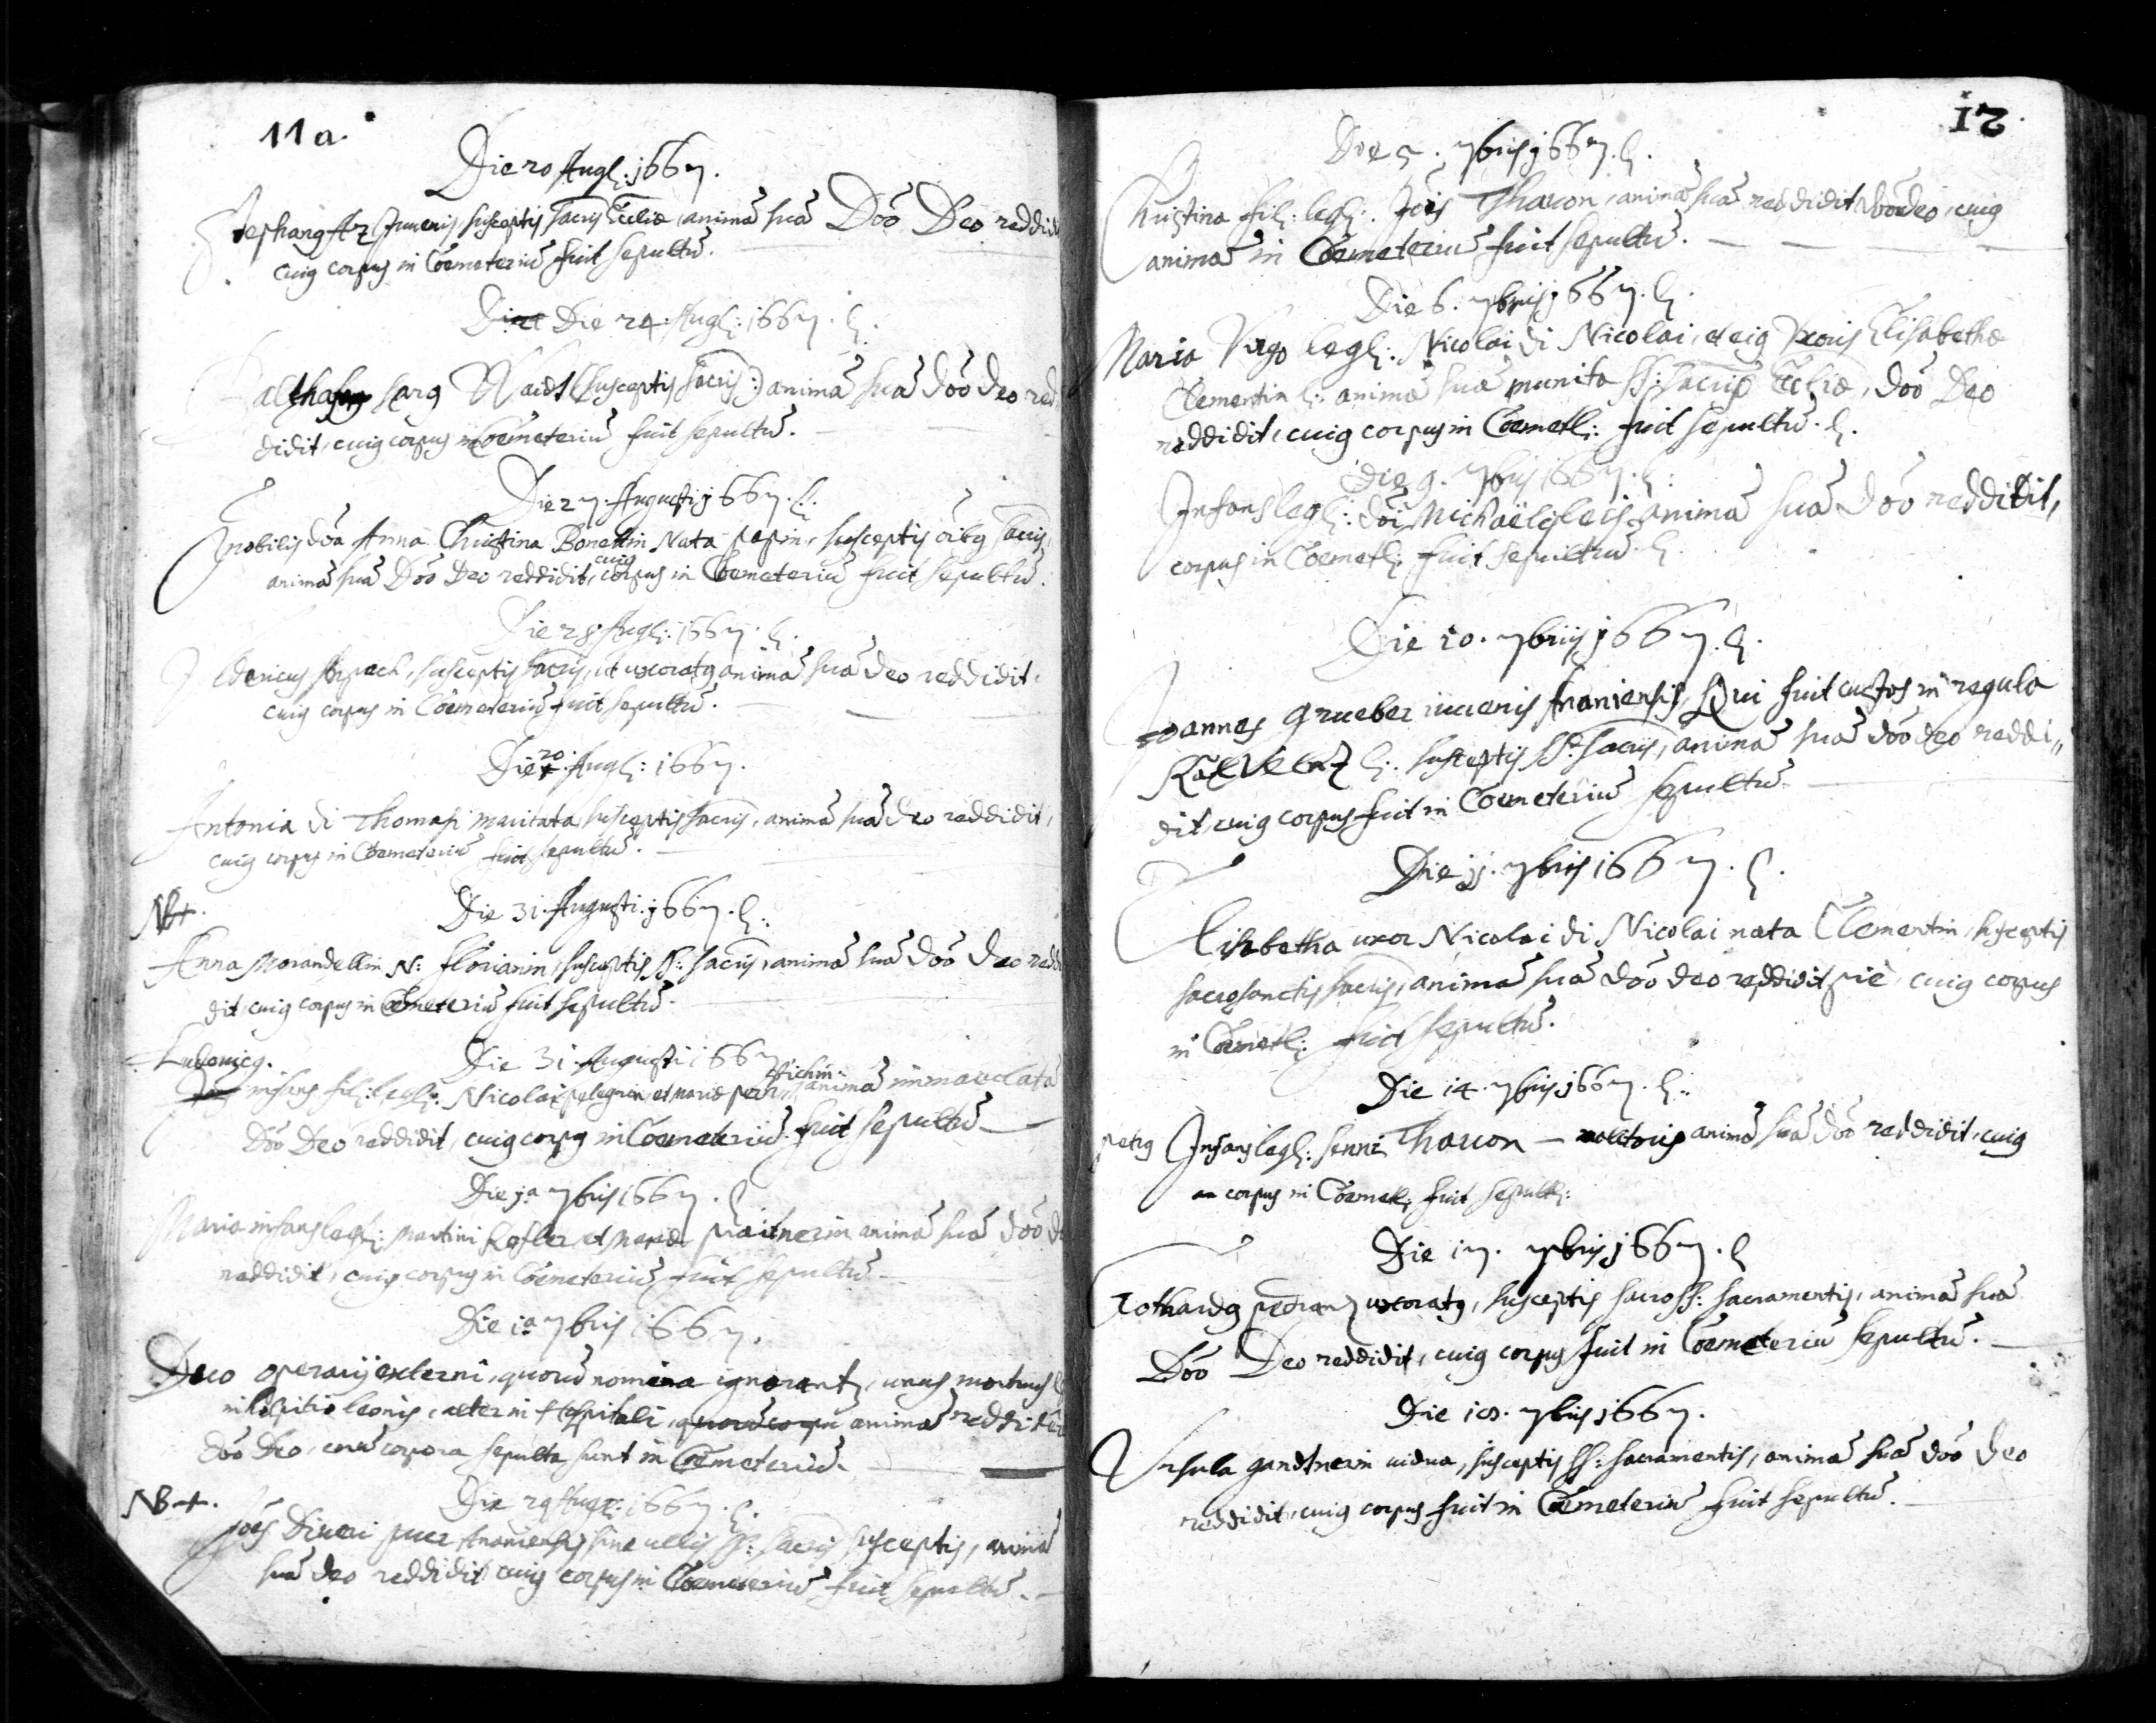 11a.
Die 20 Augl: 1667.
Stephang Az Juvenis, susceptis sacris Eccliæ, animã suã Dõo Deo reddidi
cuig corpus in Cœmeteriũ fuit sepultũ.
Die 24. Augl: 1667. l.
sarg (susceptis sacris:) animã suã dõo deo red
didit, cuig corpus in Cœmeteriũ fuit sepultũ.
Die 27. Augusti 1667. l.
Jnobilis dõa Anna Christina Bonettin Nata susceptis õibg sacris,
animã suã Dõo Deo reddidit, cuig corpus in Cœmeteriũ fuit sepultũ.
Die 28. Augl: 1667. l.
susceptis sacris, ut uxoratg animã suã deo reddidit.
cuig corpus in Cœmeteriũ fuit sepultũ.
Die 20. Augl: 1667.
Antonia di Thomasi maritata, susceptis sacris, animã suã deo reddidit,
cuig corpus in Cœmeteriũ fuit sepultũ.
NB+.
Die 31. Augusti. 1667. l:
Anna Morandellin N: Florianin, susceptis SS: sacris, animã suã dõo Deo reddi
dit, cuig corpus in Cœmeteriũ fuit sepultũ.
Ludovicg. Die 31. Augusti 1667
infans fil: legl: Nicolai pelegrin, et mariæ animã immaculatã
Dõo Deo reddidit, cuig corpg in Cœmeteriũ. fuit sepultũ
Die 1.a 7bris 1667. l
Maria infans legl: Martini Kofler, et Mariæ animã suã dõo d
reddidit, cuig corpus in Cœmeteriũ fuit sepultũ
Die 1.a 7bris 1667.
Duo operarij externi, quorũ nomina ignorant, unus mortuus
in hospitio leonis, alter in Hospitali, animã reddider
dõo Deo, corpora sepulta sunt in Cœmeteriũ.
NB+.
Die 29 Augl: 1667. l.
Jões puer Ananiensis sine ullis SS: sacris susceptis, animã
suã deo reddidit cuig corpus in Cœmeteriũ fuit sepultũ.
12.
Die 5. 7bris 1667. l.
Christina fil: legl: Jõis Thauon, animã suã reddidit dõo deo, cuig
animã in Cœmeteriũ fuit sepultũ.
Die 6. 7bris 1667. l.
Maria Virgo legl: Nicolai di Nicolai, et eig Vxoris Elisabethæ
Clementin l: animã suã munita SS: sacris Eccliæ, dõo Deo
reddidit, cuig corpus in Cœmetl: fuit sepultũ. l.
Die 9. 7bris 1667. l:
Infans legl: dõi Michaëlis animã suã dõo reddidit,
corpus in Cœmetl: fuit sepultũ. l
Die 10. 7bris 1667. l.
Joannes Grueber iuuenis Ananiensis, Qui fuit custos in regula
l: susceptis SS: sacris, animã suã dõo deo reddi„
dit, cuig corpus fuit in Cœmeteriũ sepultũ.
Die 11. 7bris 1667. l.
Elisabetha uxor Nicolai di Nicolai nata Clementin, susceptis
sacrosanctis sacris, animã suã dõo deo reddidit piè, cuig corpus
in Cœmetl: fuit sepultũ.
Die 14. 7bris 1667. l:
petrg Infans legl: Thauon — molitoris animã suã dõo reddidit, cuig
corpus in Cœmetl: fuit sepultl:
Die 17. 7bris 1667. l
Gothardg pedranz uxoratg, susceptis sacross: sacramentis, animã suã
Dõo Deo reddidit, cuig corpus fuit in Cœmeteriũ sepultũ.
Die 18. 7bris 1667.
Vrsula gandtnerin uidua, susceptis SS: sacramentis, animã suã dõo deo
reddidit, cuig corpus fuit in Cœmeteriũ fuit sepultũ.